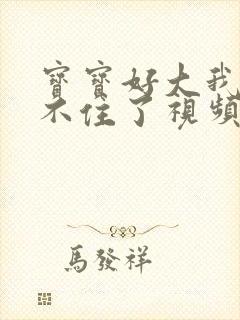 寶寶好大我
不住了視頻
馬發祥